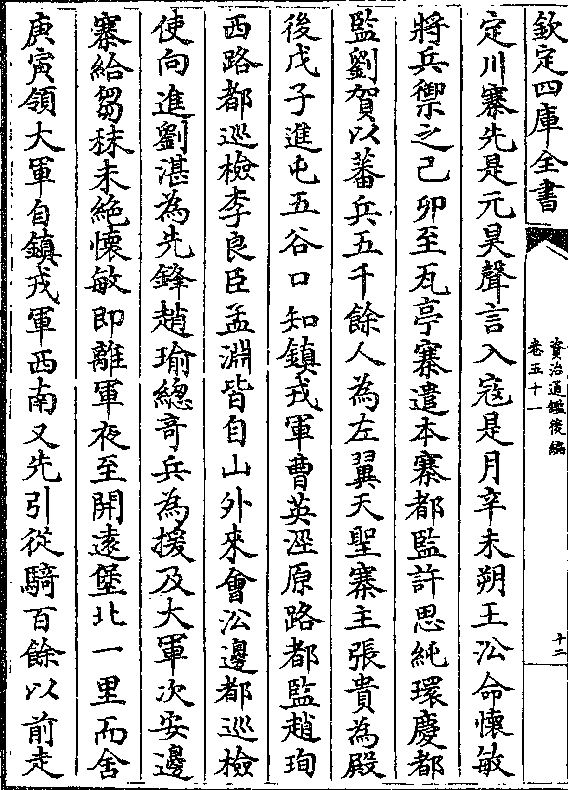 欽定四庫全書
資治通鑑後編
卷五十一
十二
定川寨先是元昊聲言入寇是月辛未朔王㳂命懷敏
將兵禦之己卯至瓦亭寨遣本寨都監許思純環慶都
監劉賀以蕃兵五千餘人為左翼天聖寨主張貴為殿
後戊子進屯五谷口知鎮戎軍曹英涇原路都監趙珣
西路都巡檢李良臣孟淵皆自山外來會㳂邊都巡檢
使向進劉湛為先鋒趙瑜總奇兵為援及大軍次安邊
寨給芻秣未絶懷敏即離軍夜至開遠堡北一里而舍
庚寅領大軍自鎮戎軍西南又先引從騎百餘以前走